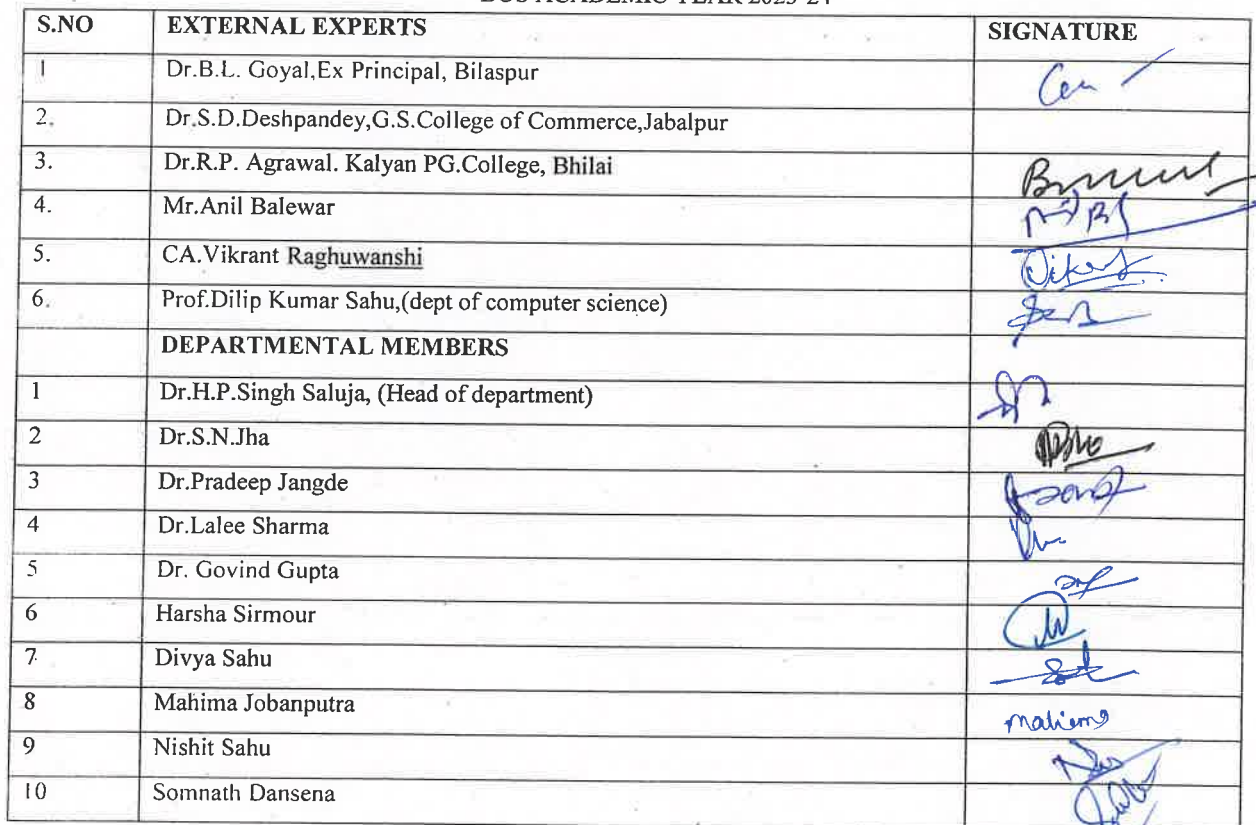 BOS ACADEMIC YEAR 2023-24
S.NO EXTERNAL EXPERTS SIGNATURE
1 Dr.B.L. Goyal,Ex Principal, Bilaspur
2. Dr.S.D.Deshpandey,G.S.College of Commerce,Jabalpur
3. Dr.R.P. Agrawal. Kalyan PG.College, Bhilai
4. Mr.Anil Balewar
5. CA.Vikrant Raghuwanshi
6. Prof.Dilip Kumar Sahu,(dept of computer science)
DEPARTMENTAL MEMBERS
1 Dr.H.P.Singh Saluja, (Head of department)
2 Dr.S.N.Jha
3 Dr.Pradeep Jangde
4 Dr.Lalee Sharma
5 Dr. Govind Gupta
6 Harsha Sirmour
7 Divya Sahu
8 Mahima Jobanputra
9 Nishit Sahu
10 Somnath Dansena